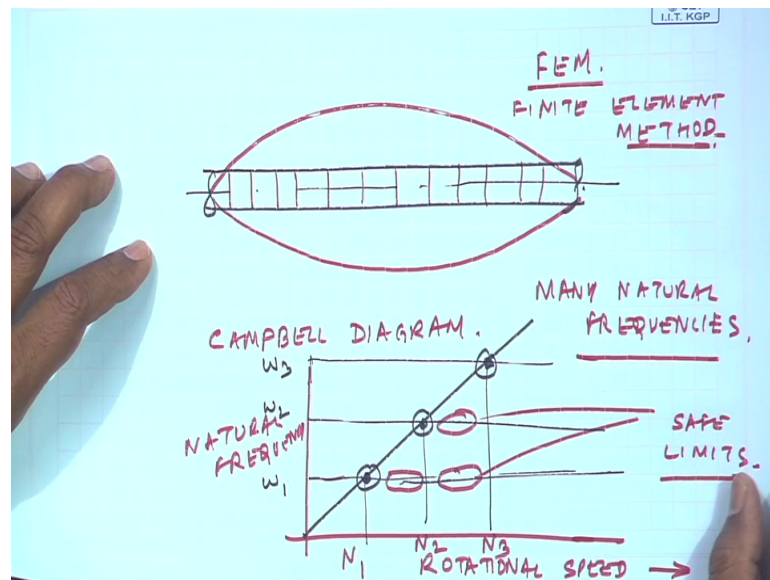 I.I.T. KGP
FEM.
FINITE ELEMENT
METHOD.
MANY NATURAL
FREQUENCIES.
CAMPBELL DIAGRAM.
ω3
ω2
NATURAL
FREQUENCY
ω1
SAFE
LIMITS.
N1 N2 N3
ROTATIONAL SPEED →